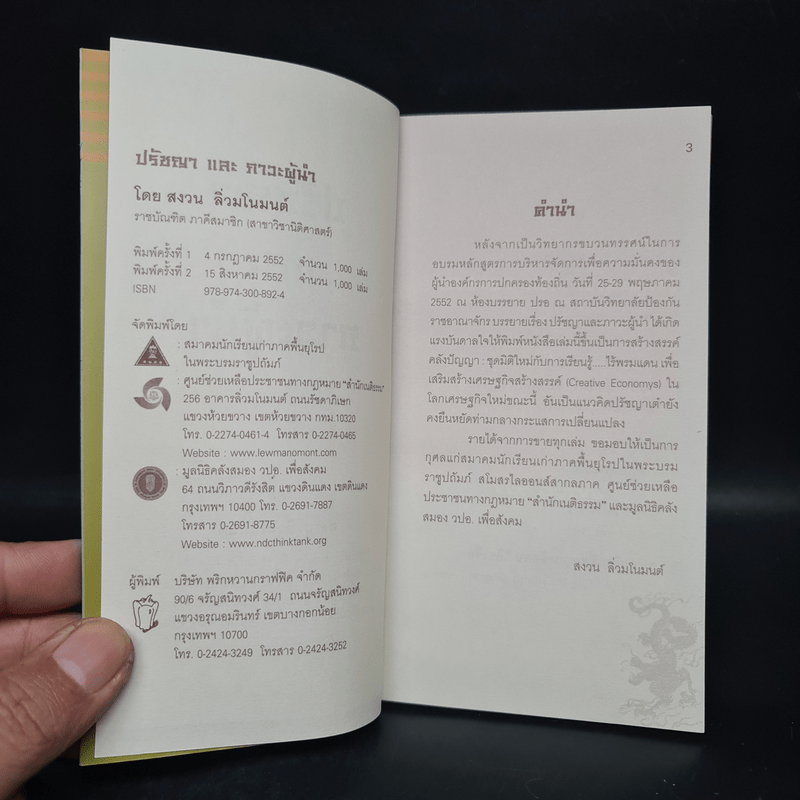 ปรัชญา และ ภาวะผู้นำ
โดย สงวน ลิ่วมโนมนต์
ราชบัณฑิต ภาคีสมาชิก (สาขาวิชานิติศาสตร์)
พิมพ์ครั้งที่ 1 4 กรกฎาคม 2552 จำนวน 1,000 เล่ม
พิมพ์ครั้งที่ 2 15 สิงหาคม 2552 จำนวน 1,000 เล่ม
ISBN 978-974-300-892-4
จัดพิมพ์โดย
: สมาคมนักเรียนเก่าภาคพื้นยุโรป
ในพระบรมราชูปถัมภ์
: ศูนย์ช่วยเหลือประชาชนทางกฎหมาย "สำนักเนติธรรม"
256 อาคารลิ่วมโนมนต์ ถนนรัชดาภิเษก
แขวงห้วยขวาง เขตห้วยขวาง กทม.10320
โทร. 0-2274-0461-4 โทรสาร 0-2274-0465
Website : www.lewmanomont.com
: มูลนิธิคลังสมอง วปอ. เพื่อสังคม
64 ถนนวิภาวดีรังสิต แขวงดินแดง เขตดินแดง
กรุงเทพฯ 10400 โทร. 0-2691-7887
โทรสาร 0-2691-8775
Website : www.ndcthinktank.org
ผู้พิมพ์ บริษัท พริกหวานกราฟฟิค จำกัด
90/6 จรัญสนิทวงศ์ 34/1 ถนนจรัญสนิทวงศ์
แขวงอรุณอมรินทร์ เขตบางกอกน้อย
กรุงเทพฯ 10700
โทร. 0-2424-3249 โทรสาร 0-2424-3252
3
คำนำ
หลังจากเป็นวิทยากรขบวนทรรศน์ในการ
อบรมหลักสูตรการบริหารจัดการเพื่อความมั่นคงของ
ผู้นำองค์กรการปกครองท้องถิ่น วันที่ 25-29 พฤษภาคม
2552 ณ ห้องบรรยาย ปรอ ณ สถาบันวิทยาลัยป้องกัน
ราชอาณาจักร บรรยายเรื่อง ปรัชญาและภาวะผู้นำ ได้เกิด
แรงบันดาลใจให้พิมพ์หนังสือเล่มนี้ขึ้นเป็นการสร้างสรรค์
คลังปัญญา : ชุดมิติใหม่กับการเรียนรู้.....ไร้พรมแดน เพื่อ
เสริมสร้างเศรษฐกิจสร้างสรรค์ (Creative Economys) ใน
โลกเศรษฐกิจใหม่ขณะนี้ อันเป็นแนวคิดปรัชญาเต๋ายัง
คงยืนหยัดท่ามกลางกระแสการเปลี่ยนแปลง
รายได้จากการขายทุกเล่ม ขอมอบให้เป็นการ
กุศลแก่สมาคมนักเรียนเก่าภาคพื้นยุโรปในพระบรม
ราชูปถัมภ์ สโมสรไลออนส์สากลภาค ศูนย์ช่วยเหลือ
ประชาชนทางกฎหมาย "สำนักเนติธรรม" และมูลนิธิคลัง
สมอง วปอ. เพื่อสังคม
สงวน ลิ่วมโนมนต์